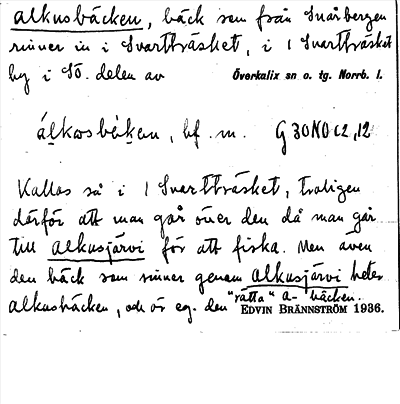 alkusbäcken, bäck som från Snårbergen
rinner in i Svartträsket, i 1 Svartträsket
by i SO. delen av Överkalix sn o. tg. Norrb. l.
bf. m. G 30 NO c2, 12
Kallas så i 1 Svartträsket, troligen
därför att man går över den då man går
till alkusjärvi för att fiska. Men även
den bäck som rinner genom alkusjärvi heter
alkusbäcken, och är eg. den "rätta" a-bäcken.
EDVIN BRÄNNSTRÖM 1936.